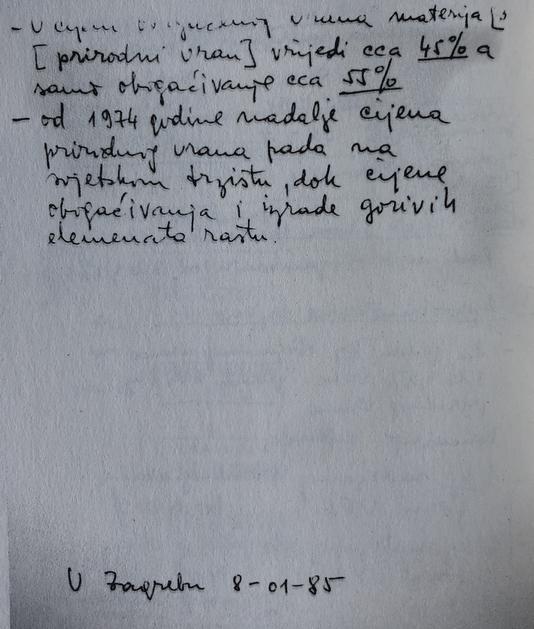 - U cijeni obogaćenog urana materijal
[prirodni uran] vrijedi cca 45% a
samo obogaćivanje cca 55%
- od 1974 godine nadalje cijena
prirodnog urana pada na
svjetskom tržištu, dok cijene
obogaćivanja i izrade gorivih
elemenata rastu.
U Zagrebu 8-01-85